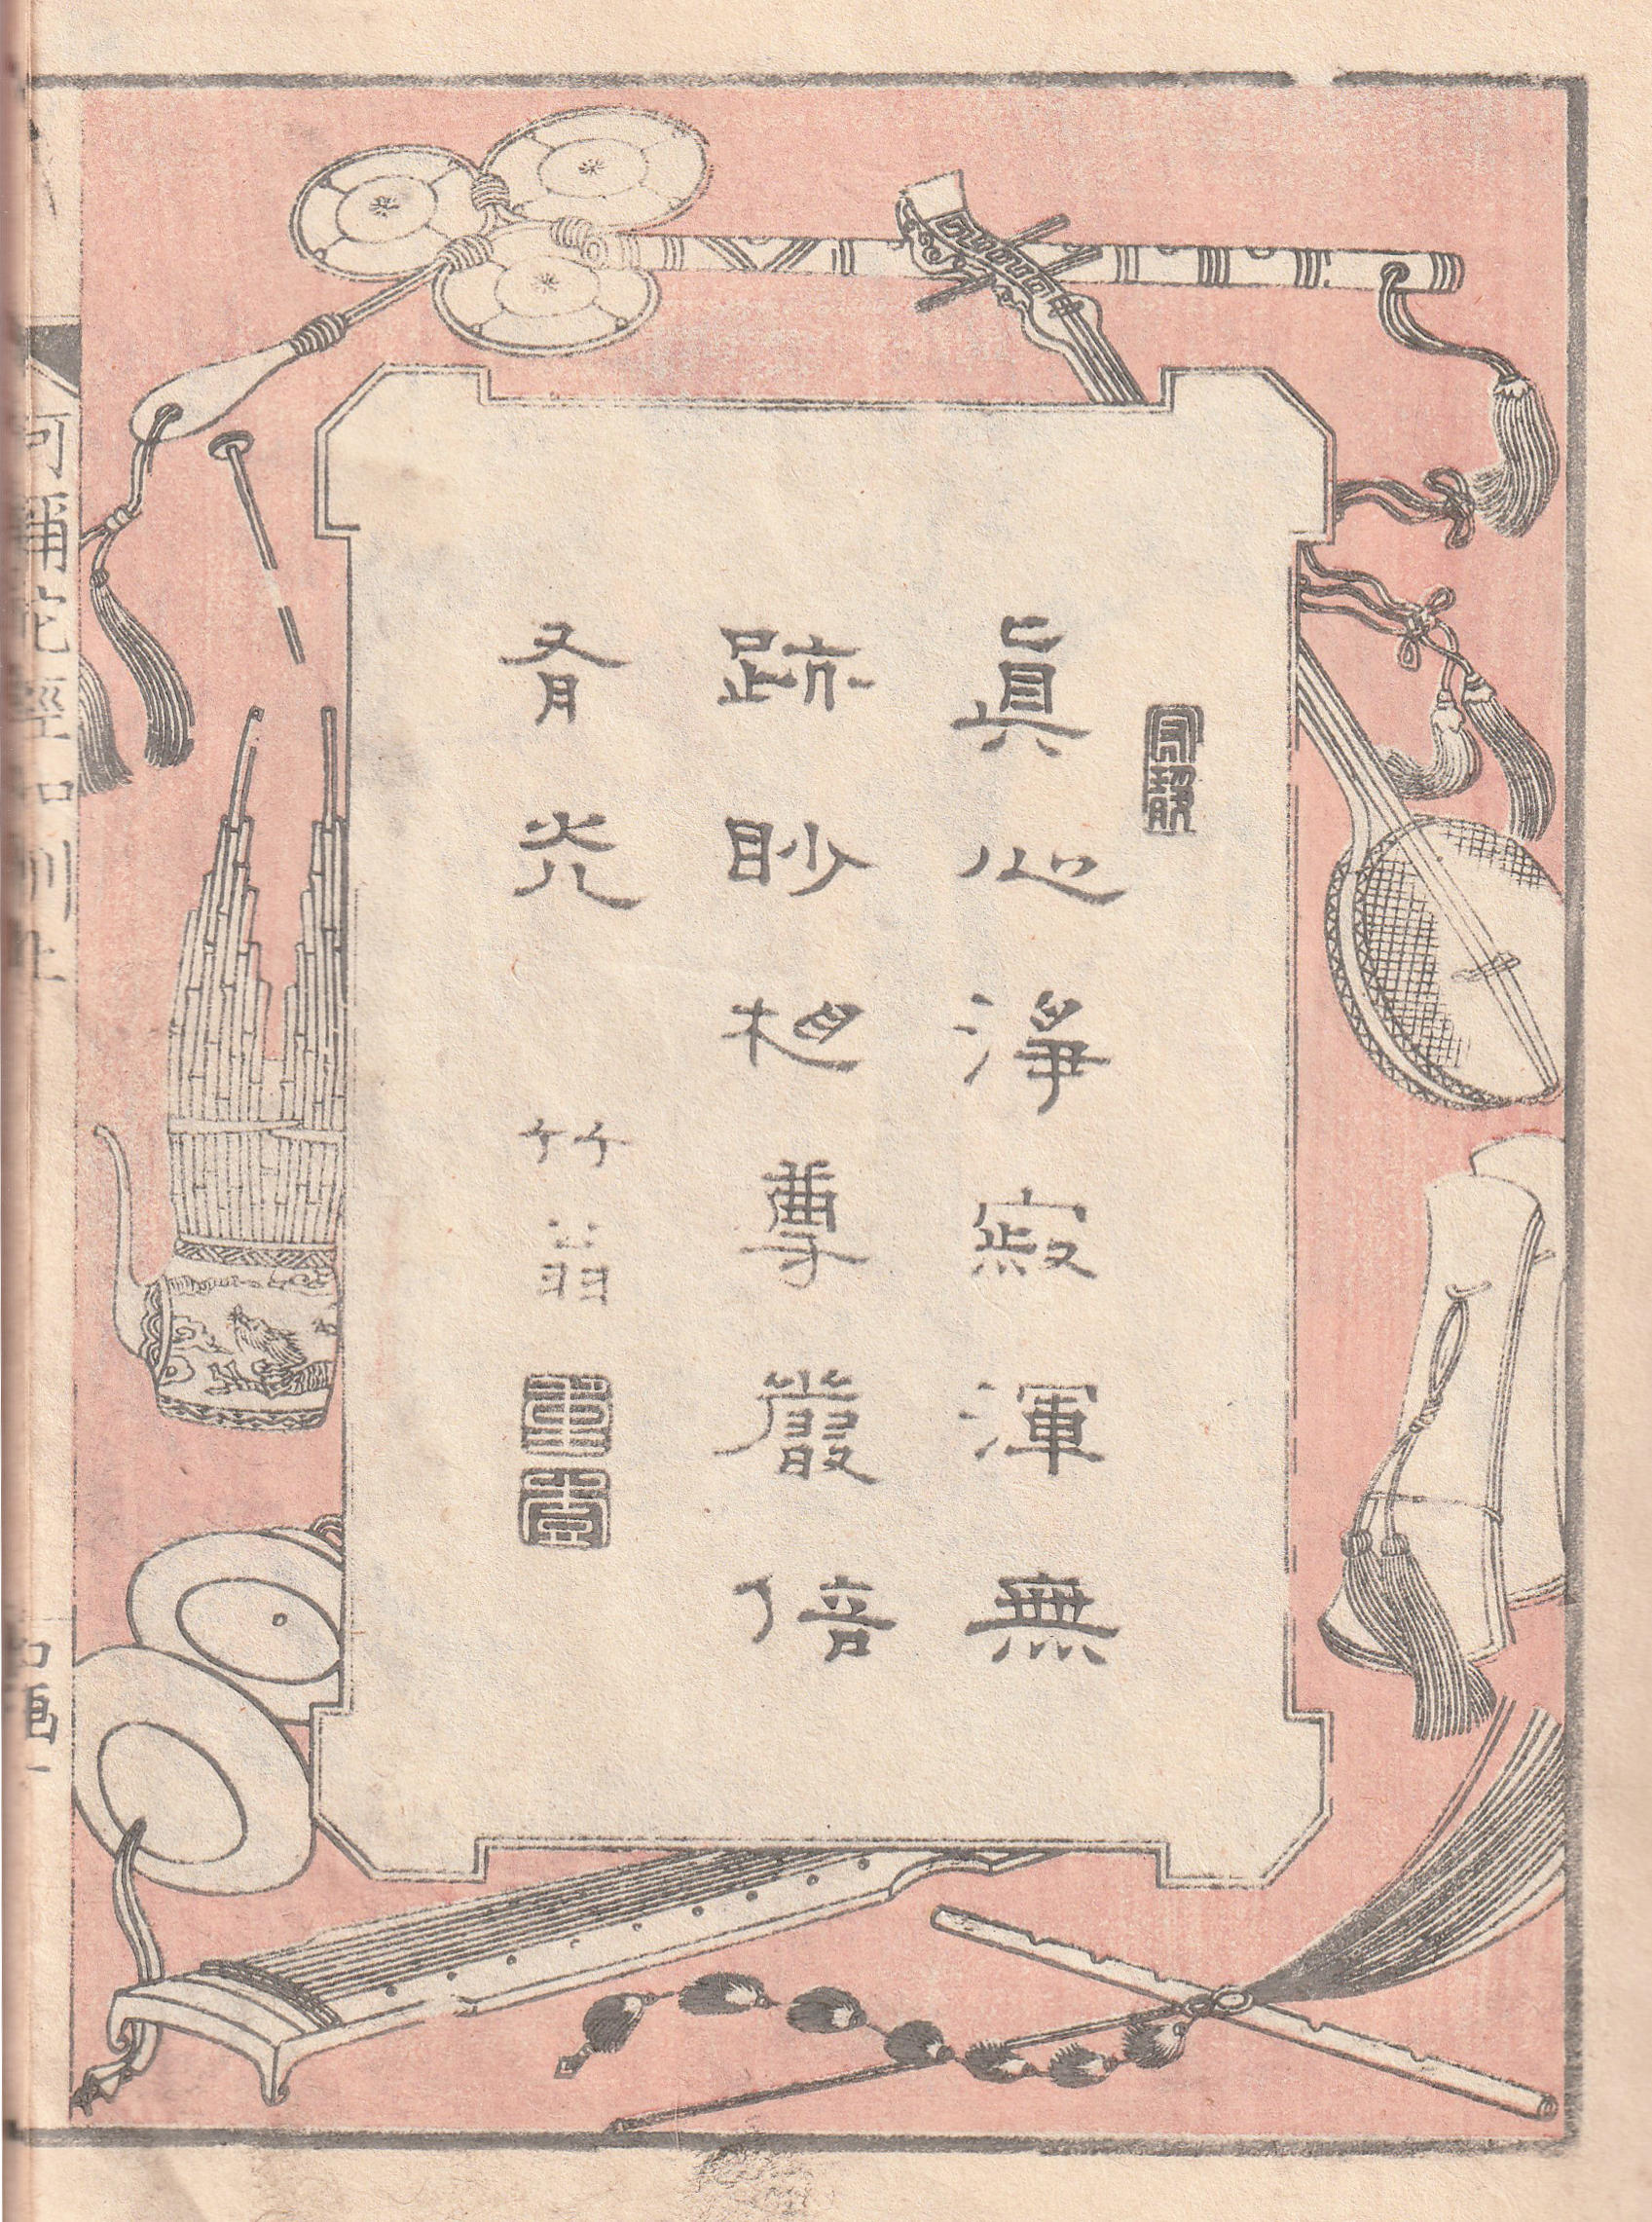 眞心淨寂渾無
跡眇相尊嚴倍
有光 竹翁
阿彌陀經和訓上